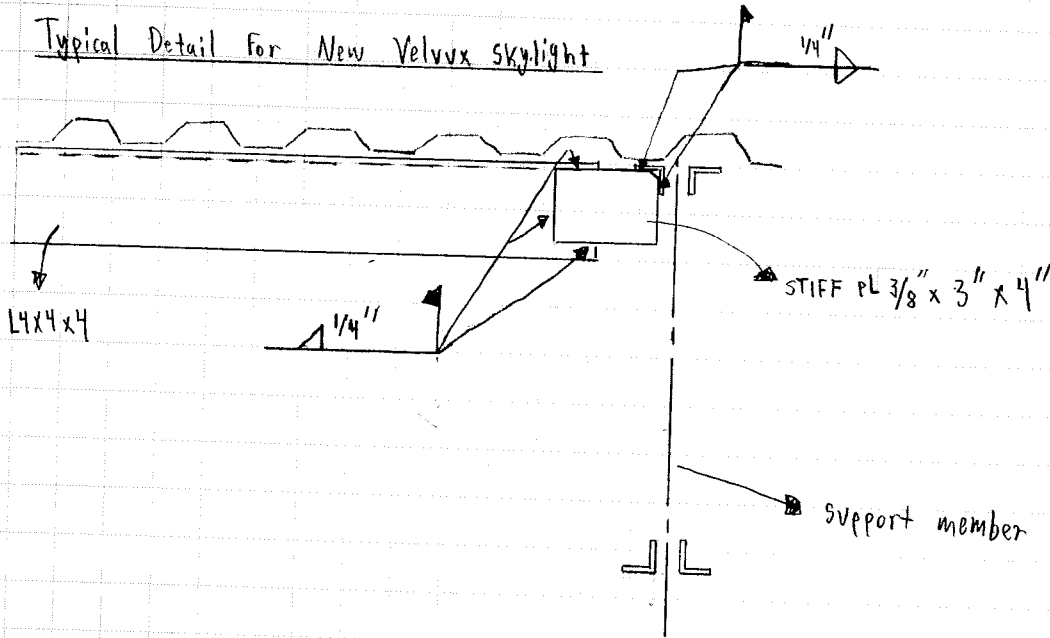 Typical Detail For New Velvvx skylight
1/4"
STIFF PL 3/8" x 3" x 4"
L4x4x4
1/4"
Support member